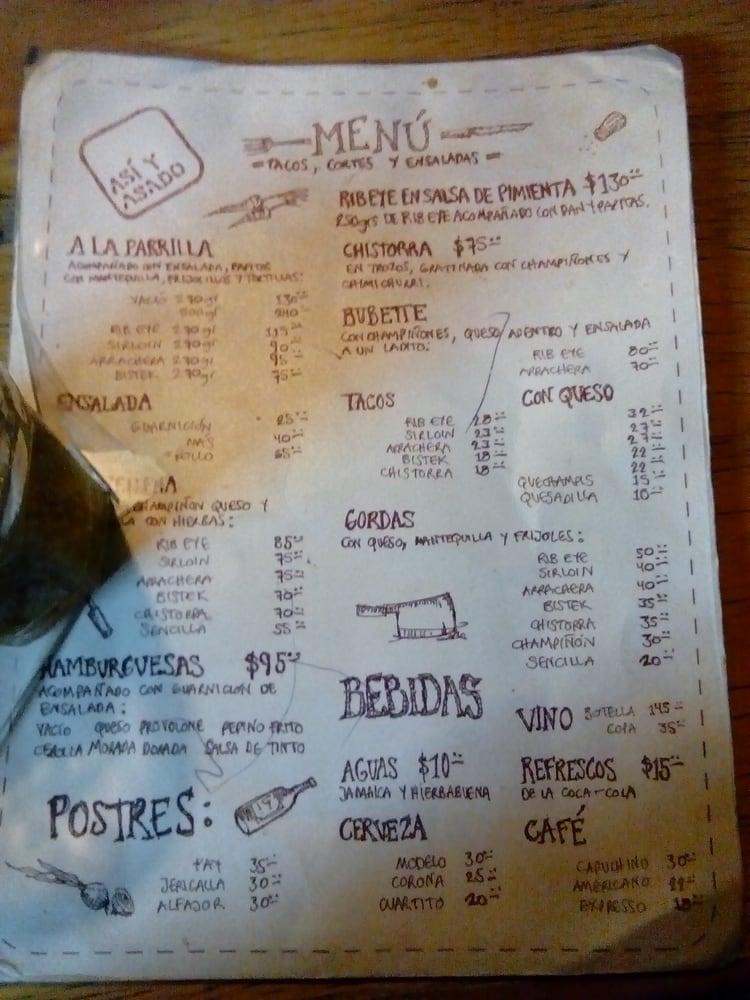 ASÍ Y
ASADO
MENÚ
TACOS, CORTES Y ENSALADAS
A LA PARRILLA
ACOMPAÑADO CON ENSALADA, PAPITAS
CON MANTEQUILLA, FRIJOLITOS Y TORTILLAS:
VACÍO 270gr 130
500gr 240
RIB EYE 270gr 115
SIRLOIN 270gr 90
ARRACHERA 270gr 95
BISTEK 270gr 75
ENSALADA
GUARNICIÓN 25
MÁS 40
POLLO 65
CHAMPIÑON QUESO Y
CON HIERBAS:
RIB EYE 85
SIRLOIN 75
ARRACHERA 75
BISTEK 70
CHISTORRA 70
SENCILLA 55
HAMBURGUESAS $95
ACOMPAÑADO CON GUARNICION DE
ENSALADA:
VACÍO QUESO PROVOLONE PEPINO FRITO
CEBOLLA MORADA DORADA SALSA DE TINTO
POSTRES:
PAY 35
JERICALLA 30
ALFAJOR 30
RIBEYE EN SALSA DE PIMIENTA $130
250grs DE RIB EYE ACOMPAÑADO CON PAN Y PAPITAS.
CHISTORRA $75
EN TROZOS, GRATINADA CON CHAMPIÑONES Y
CHIMICHURRI.
BUBETTE
CON CHAMPIÑONES, QUESO ADENTRO Y ENSALADA
A UN LADITO:
RIB EYE 80
ARRACHERA 70
TACOS CON QUESO
RIB EYE 28 32
SIRLOIN 23 27
ARRACHERA 23 27
BISTEK 18 22
CHISTORRA 18 22
QUECHAMPIS 15
QUESADILLA 10
GORDAS
CON QUESO, MANTEQUILLA Y FRIJOLES:
RIB EYE 50
SIRLOIN 40
ARRACHERA 40
BISTEK 35
CHISTORRA 35
CHAMPIÑÓN 30
SENCILLA 20
BEBIDAS
VINO BOTELLA 145
COPA 35
AGUAS $10
JAMAICA Y HIERBABUENA
REFRESCOS $15
DE LA COCA-COLA
CERVEZA
MODELO 30
CORONA 25
CUARTITO 20
CAFÉ
CAPUCHINO 30
AMERICANO
EXPRESSO 18